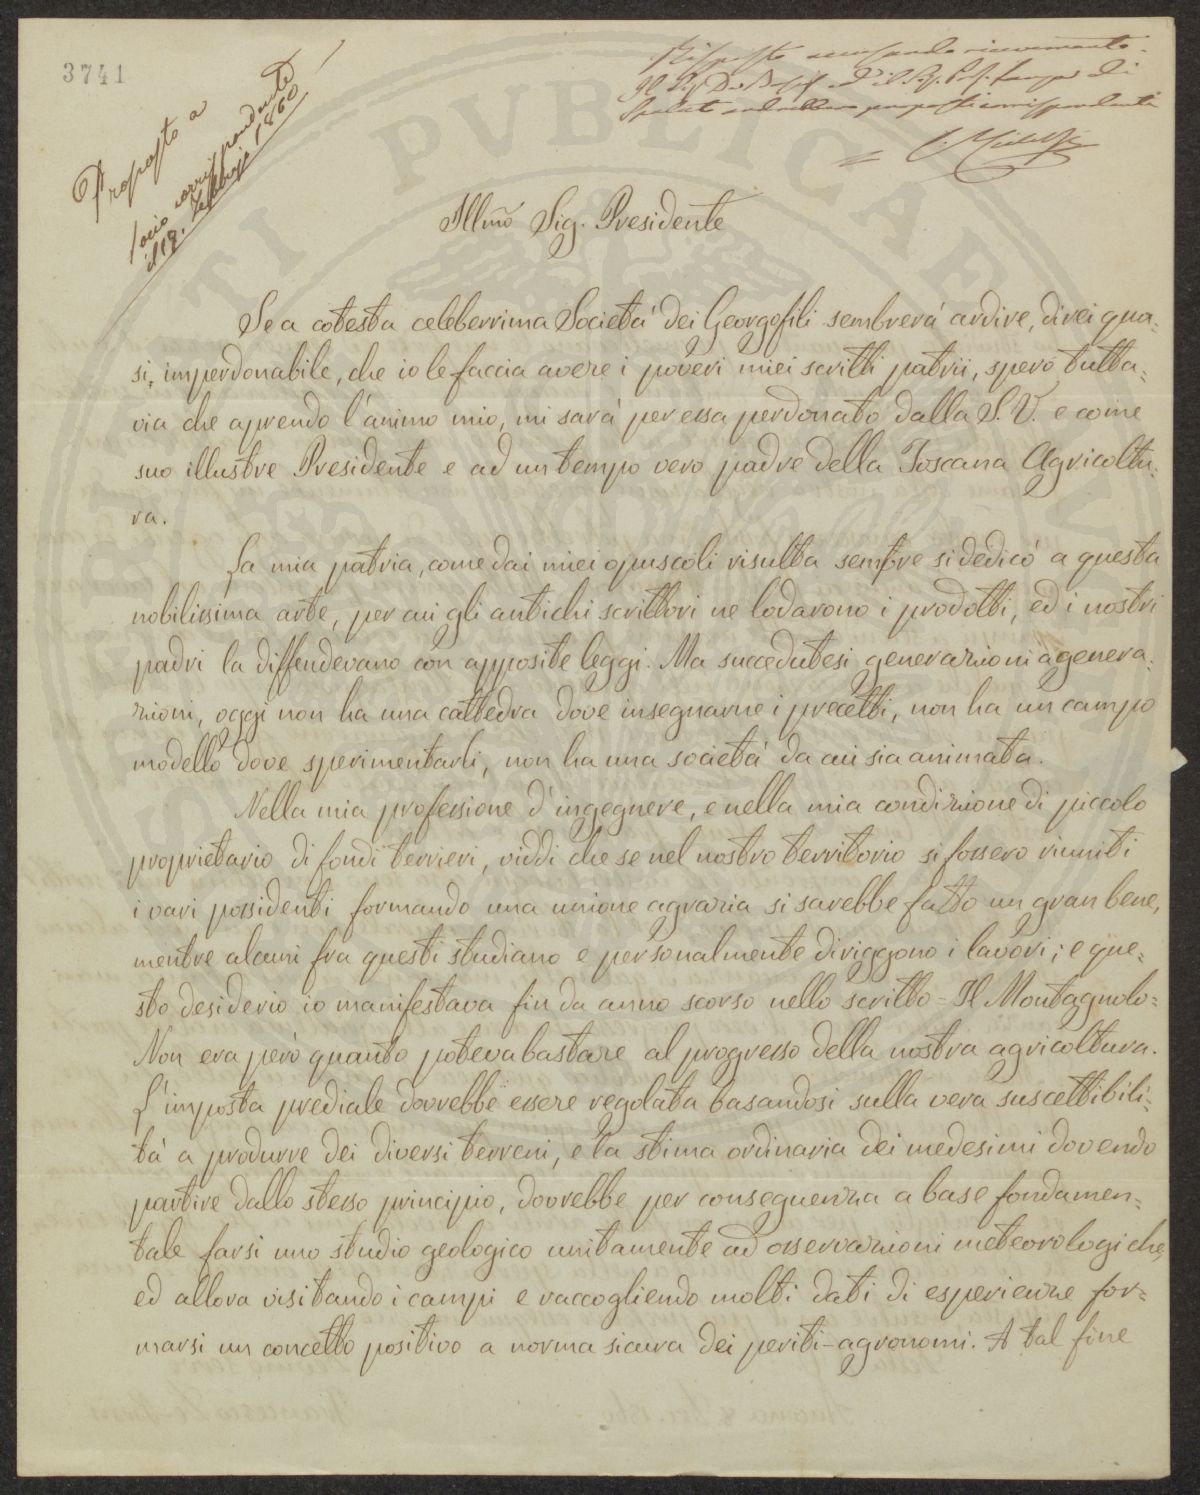 3741
Proposto a
socio corrispondente
il 19. 1860
Risposto accusando ricevimento.
Illmo Sig. Presidente
Se a cotesta celeberrima Società dei Georgofili sembrerà ardire, direi qua=
si, imperdonabile, che io le faccia avere i poveri miei scritti patrii, spero tutta=
via che aprendo l'animo mio, mi sarà per essa perdonato dalla S. V. e come
suo illustre Presidente e ad un tempo vero padre della Toscana Agricoltu=
ra.
La mia patria, come dai miei opuscoli risulta sempre si dedicò a questa
nobilissima arte, per cui gli antichi scrittori ne lodarono i prodotti, ed i nostri
padri la diffendevano con apposite leggi. Ma succedutesi generazioni a genera=
zioni, oggi non ha una cattedra dove insegnarne i precetti, non ha un campo
modello dove sperimentarli, non ha una società da cui sia animata.
Nella mia professione d'ingegnere, e nella mia condizione di piccolo
proprietario di fondi terrieri, viddi che se nel nostro territorio si fossero riuniti
i vari possidenti formando una unione agraria si sarebbe fatto un gran bene,
mentre alcuni fra questi studiano e personalmente diriggono i lavori; e que=
sto desiderio io manifestava fin da anno scorso nello scritto = Il Montagnolo=
Non era però quanto poteva bastare al progresso della nostra agricoltura.
L'imposta prediale dovrebbe essere regolata basandosi sulla vera suscettibili=
tà a produrre dei diversi terreni, e la stima ordinaria dei medesimi dovendo
partire dallo stesso principio, dovrebbe per conseguenza a base fondamen=
tale farsi uno studio geologico unitamente ad osservazioni meteorologiche,
ed allora visitando i campi e raccogliendo molti dati di esperienze for=
marsi un concetto positivo a norma sicura dei periti-agronomi. A tal fine